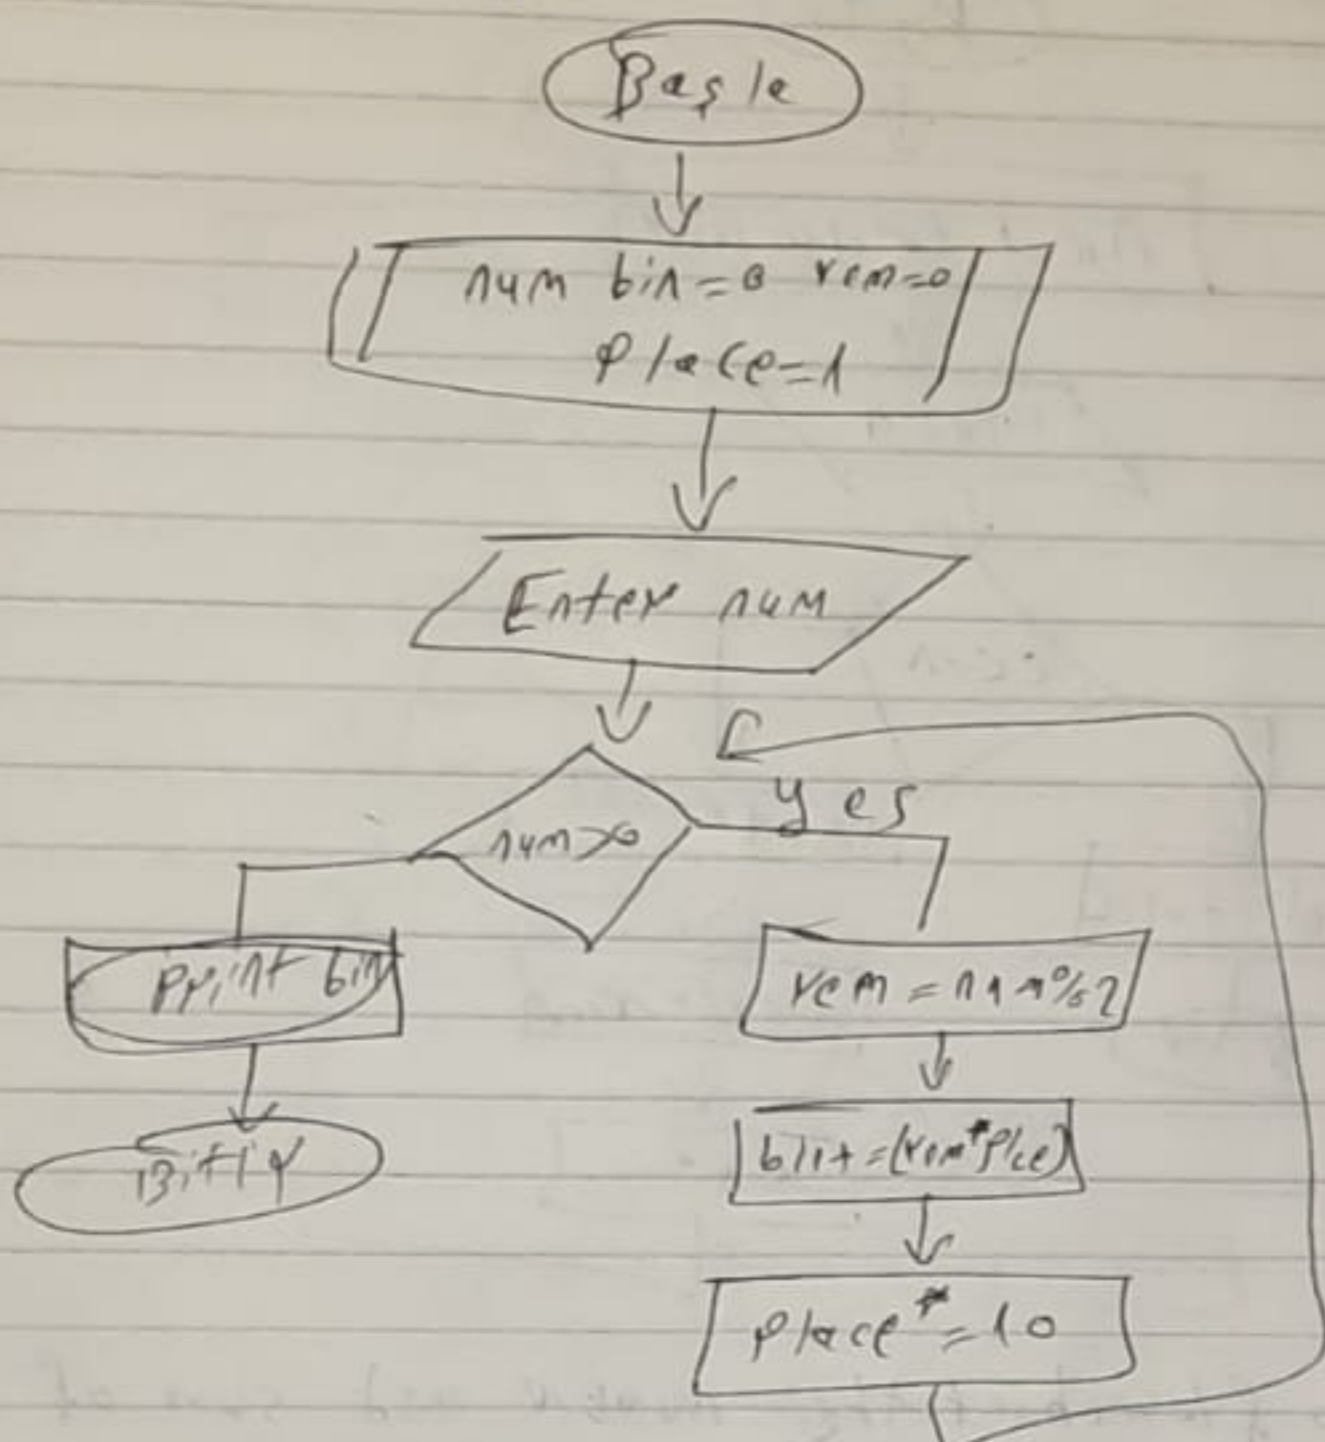 Başla
num bin=0 rem=0
place=1
Enter num
num>0
yes
print bin
rem=num%2
bin+=(rem*plce)
place*=10